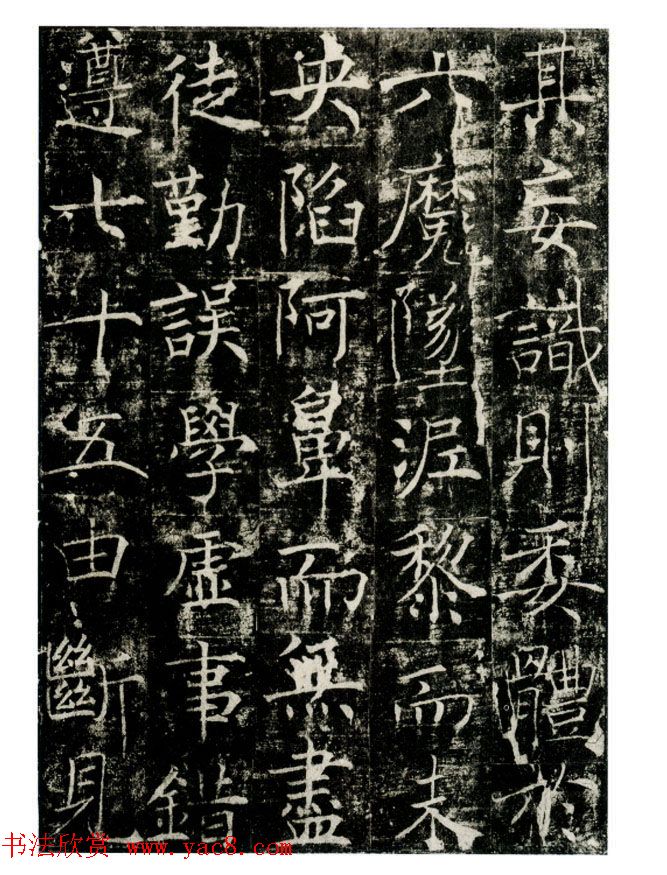 其妄識則委體於
六魔墜泥黎而未
央陷阿鼻而無盡
徒勤誤學虛事錯
遵七十五由斷見
书法欣赏 www.yac8.com